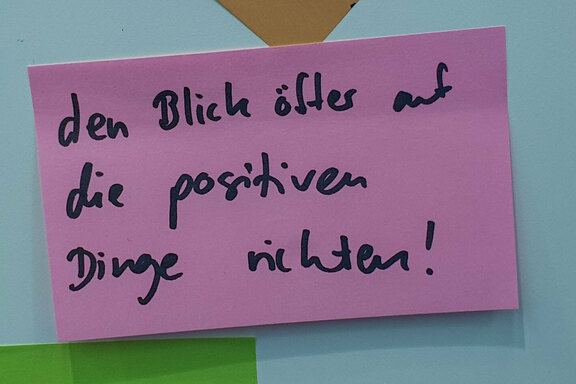 den Blick öfter auf
die positiven
Dinge richten!